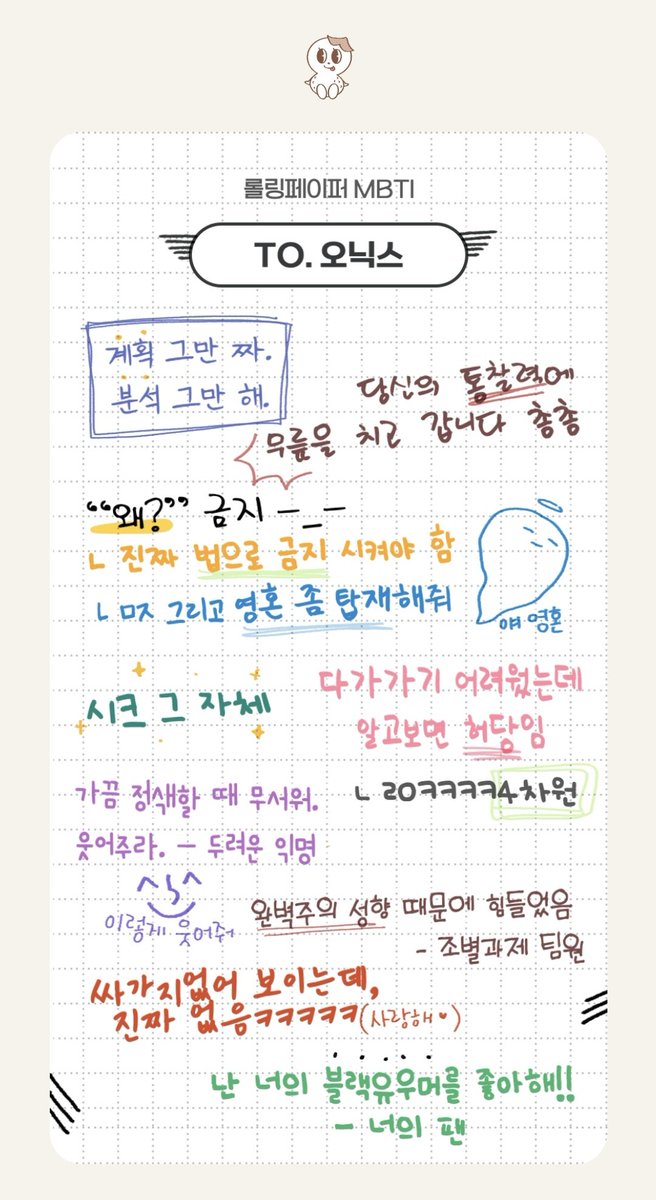 롤링페이퍼 MBTI
TO. 오닉스
계획 그만 짜.
분석 그만 해.
당신의 통찰력에
무릎을 치고 갑니다 총총
“왜?” 금지 -_-
ㄴ 진짜 법으로 금지 시켜야 함
ㄴ ㅁㅈ 그리고 영혼 좀 탑재해줘
얘 영혼
시크 그 자체
다가가기 어려웠는데
알고보면 허당임
ㄴ ㄹㅇㅋㅋㅋㅋ4차원
가끔 정색할 때 무서워.
웃어주라. - 두려운 익명
이렇게 웃어줘
완벽주의 성향 때문에 힘들었음
- 조별과제 팀원
싸가지없어 보이는데,
진짜 없음ㅋㅋㅋㅋㅋ(사랑해♥)
난 너의 블랙유우머를 좋아해!!
- 너의 팬